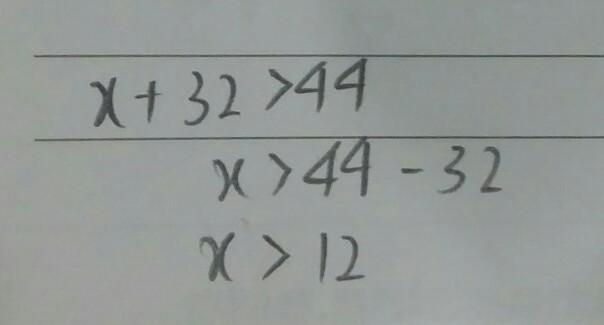 x + 32 > 44
x > 44 - 32
x > 12